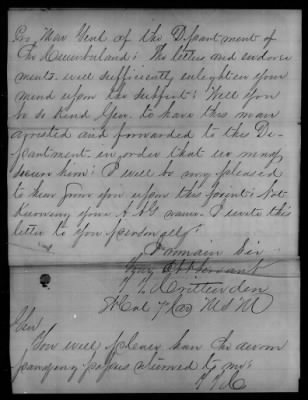 Pro. Mar Genl of the Department of
the Cumberland: The letters and endorse
ments will sufficiently enlighten your
mind upon the subject: Will you
be so kind Gen. to have this man
arrested and forwarded to this De-
partment in order that we may
him: I will be very pleased
to hear from you upon this point: Not
knowing your A A G name. I write this
letter to you personally:
I remain Sir
Your Obt Servant
T. T. Crittenden
Lt Col 7 Cav M S M
Gen
You will please have the accom
panying papers returned to me:
T. T. C